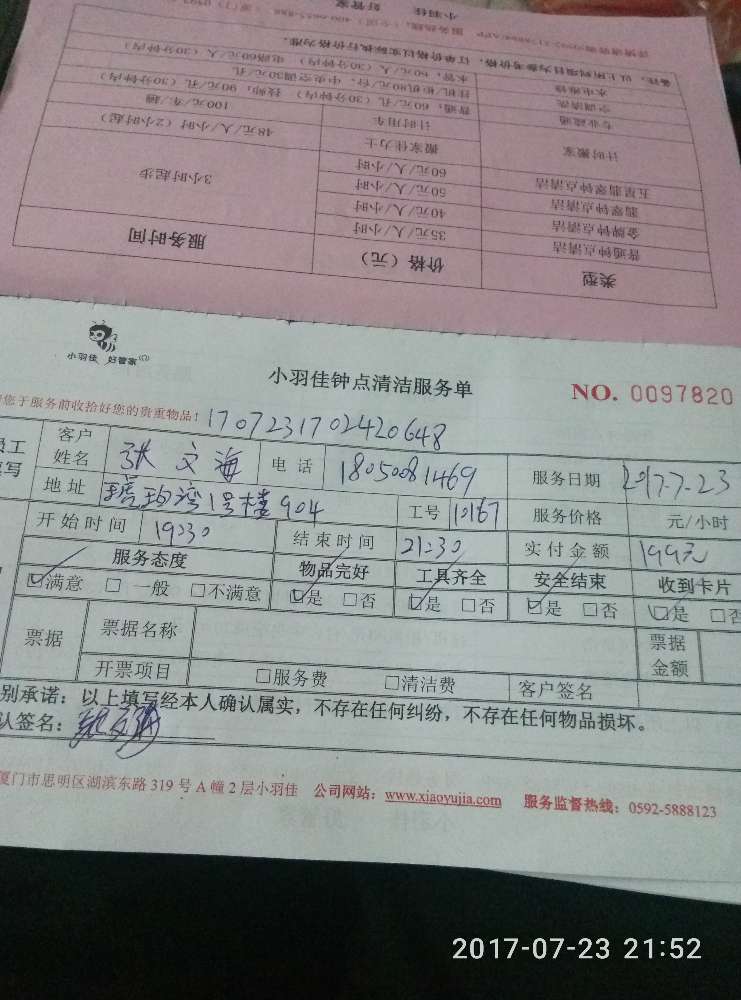 小羽佳 好管家
备注：以上所列项目为参考价格，订单价格以实际执行价格为准。
类型 价格（元） 服务时间
普通钟点清洁 35元/人/小时 3小时起步
金牌钟点清洁 40元/人/小时
翡翠钟点清洁 50元/人/小时
五星翡翠钟点清洁 60元/人/小时
计时搬家 搬家佳力士 48元/人/小时（2小时起）
计时用车 100元/车/趟
专业疏通 普通：60元/孔（30分钟内） 技师：90元/孔（30分钟内）
空调清洗 挂机、柜机80元/台，中央空调30元/孔
水电维修 水管：60元/人（30分钟内） 电路60元/人（30分钟内）
小羽佳 好管家
小羽佳钟点清洁服务单
NO. 0097820
您于服务前收拾好您的贵重物品！ 170723170242064​8
客户姓名 张文海 电话 18050081469 服务日期 2017.7.23
地址 琥珀湾1号楼904 工号 10167 服务价格 元/小时
开始时间 19:30 结束时间 21:30 实付金额 199元
服务态度 物品完好 工具齐全 安全结束 收到卡片
☑满意 □一般 □不满意 ☑是 □否 ☑是 □否 ☑是 □否 ☑是 □否
票据 票据名称 票据金额
开票项目 □服务费 □清洁费 客户签名
别承诺：以上填写经本人确认属实，不存在任何纠纷，不存在任何物品损坏。
认签名：
厦门市思明区湖滨东路319号A幢2层小羽佳 公司网站：www.xiaoyujia.com 服务监督热线：0592-5888123
2017-07-23 21:52